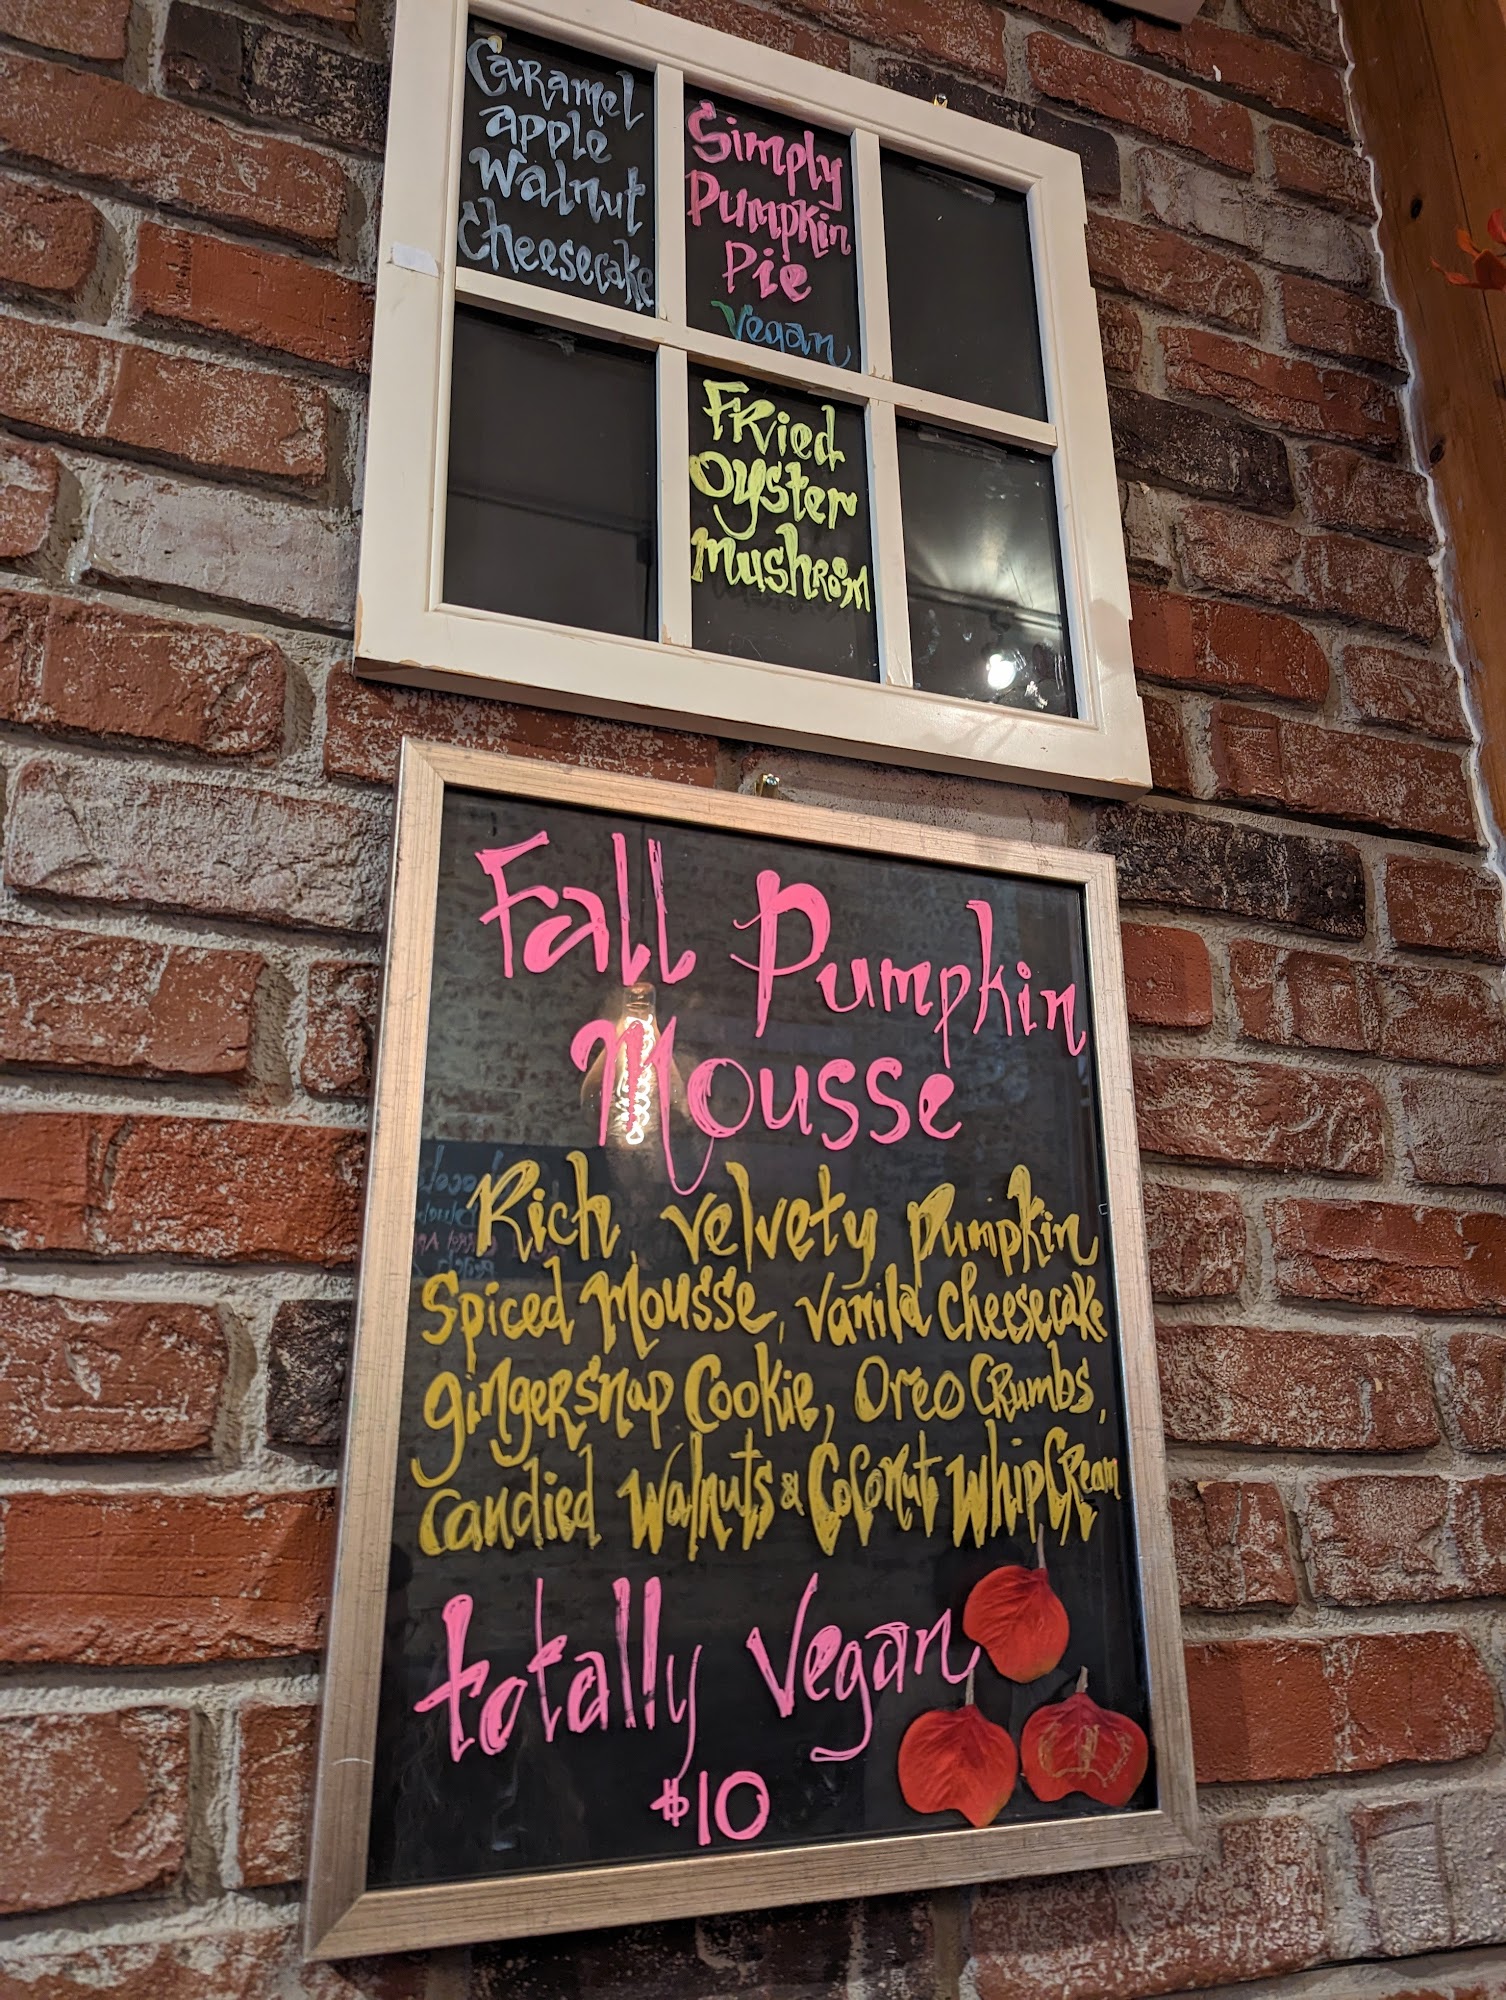 Caramel
apple
Walnut
Cheesecake
Simply
Pumpkin
Pie
Vegan
Fried
Oyster
Mushroom
Fall Pumpkin
Mousse
Rich, velvety pumpkin
Spiced Mousse, Vanilla Cheesecake
gingersnap Cookie, Oreo Crumbs,
Candied Walnuts & Coconut Whip Cream
totally Vegan
$10